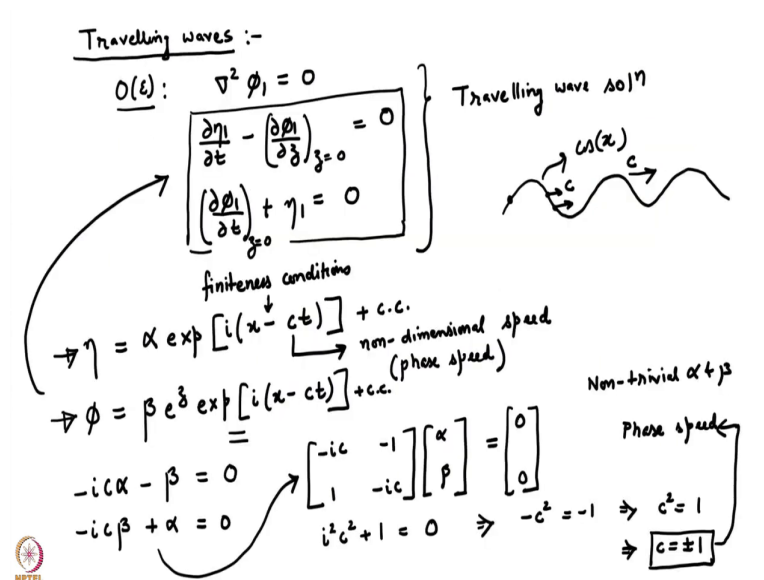 Travelling waves :-
O(ε) : ∇² φ₁ = 0
∂η₁/∂t - (∂φ₁/∂z)_{z=0} = 0
(∂φ₁/∂t)_{z=0} + η₁ = 0
Travelling wave solⁿ
cos(x)
c
c
finiteness conditions
η = α exp[i(x - ct)] + c.c.
non-dimensional speed
(phase speed)
φ = β e^z exp[i(x - ct)] + c.c.
Non-trivial α & β
Phase speed
-icα - β = 0
-icβ + α = 0
[-ic -1; 1 -ic] [α; β] = [0; 0]
i²c² + 1 = 0 ⇒ -c² = -1 ⇒ c² = 1
⇒ c = ±1
NPTEL